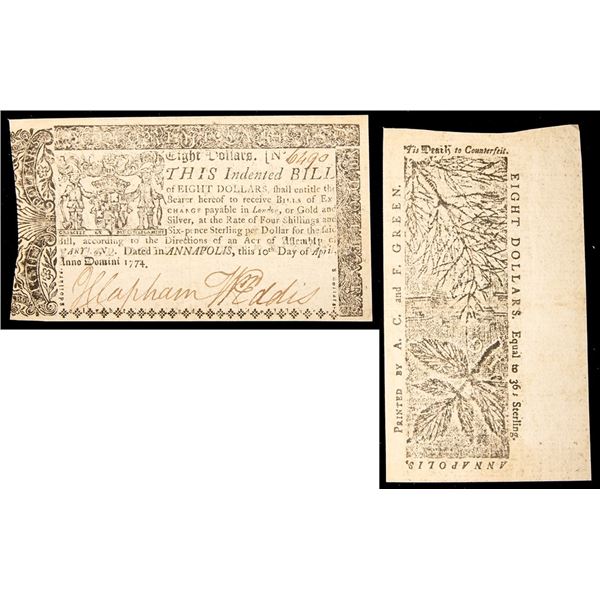 Eight Dollars. [No 6490
THIS Indented BILL
of EIGHT DOLLARS, shall entitle the
Bearer hereof to receive BILLS of EX-
CHANGE payable in London, or Gold and
Silver, at the Rate of Four Shillings and
Six-pence Sterling per Dollar for the said
Bill, according to the Directions of an Act of Assembly of
MARYLAND. Dated in ANNAPOLIS, this 10th Day of April
Anno Domini 1774.
CRESCITE ET MULTIPLICAMINI
J Clapham Wm Eddis
'Tis Death to Counterfeit.
EIGHT DOLLARS. Equal to 36s Sterling.
PRINTED BY A. C. and F. GREEN.
ANNAPOLIS